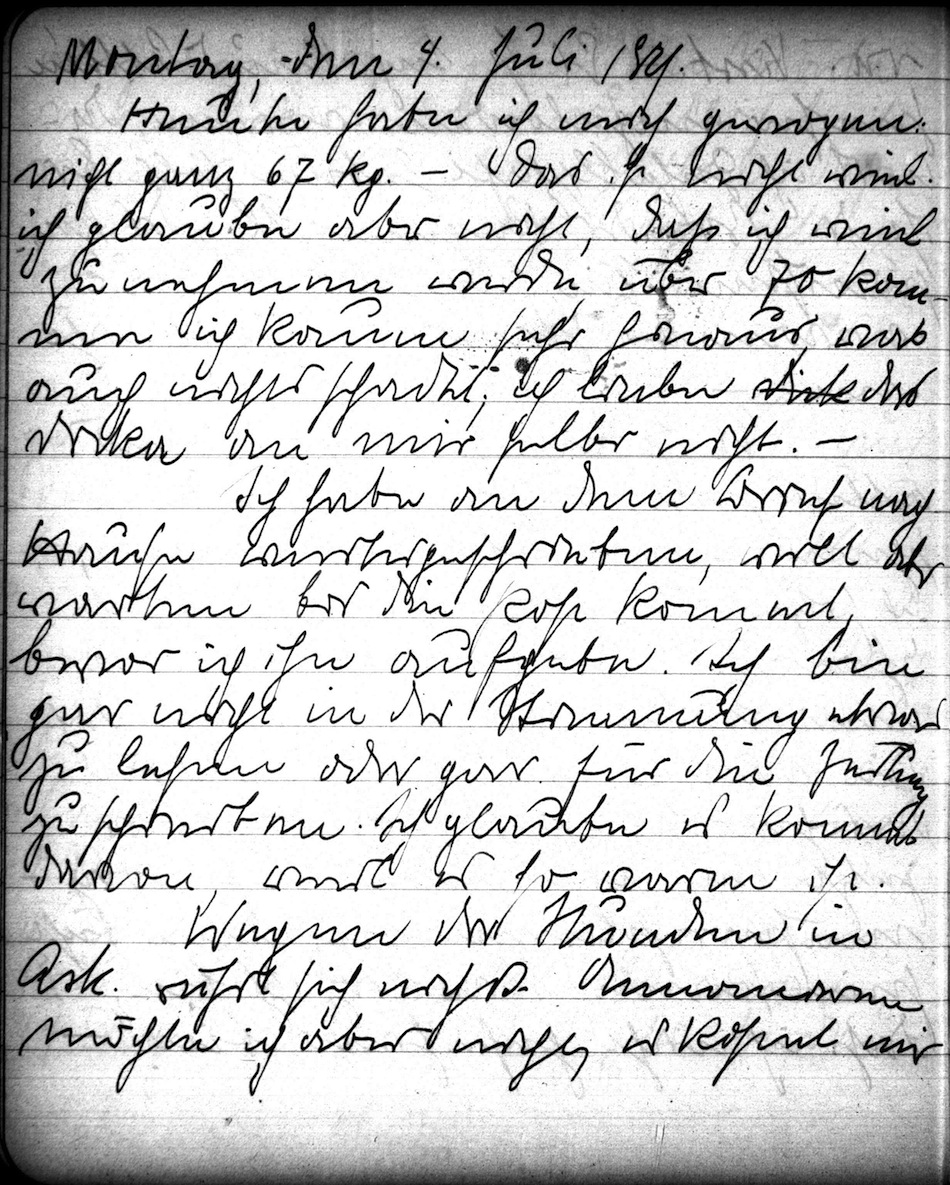 Montag, den 4. Juli 1921.
Heute habe ich mich gewogen:
nicht ganz 67 kg. – Das ist nicht viel.
ich glaube aber nicht, daß ich viel
zunehmen werde über 70 kom-
me ich kaum sehr hinaus, was
auch nichts schadet; ich liebe das
dicke an mir selber nicht. –
Ich habe an dem Brief nach
Hause weitergeschrieben, will aber
warten bis die Post kommt,
bevor ich ihn aufgebe. Ich bin
gar nicht in der Stimmung etwas
zu lesen oder gar für die Zeitung
zu schreiben. Ich glaube es kommt
davon, weil es so warm ist.
Wegen der Stunden in
Ask. rührt sich nichts. Annoncieren
möchte ich aber nicht, es kostet mir